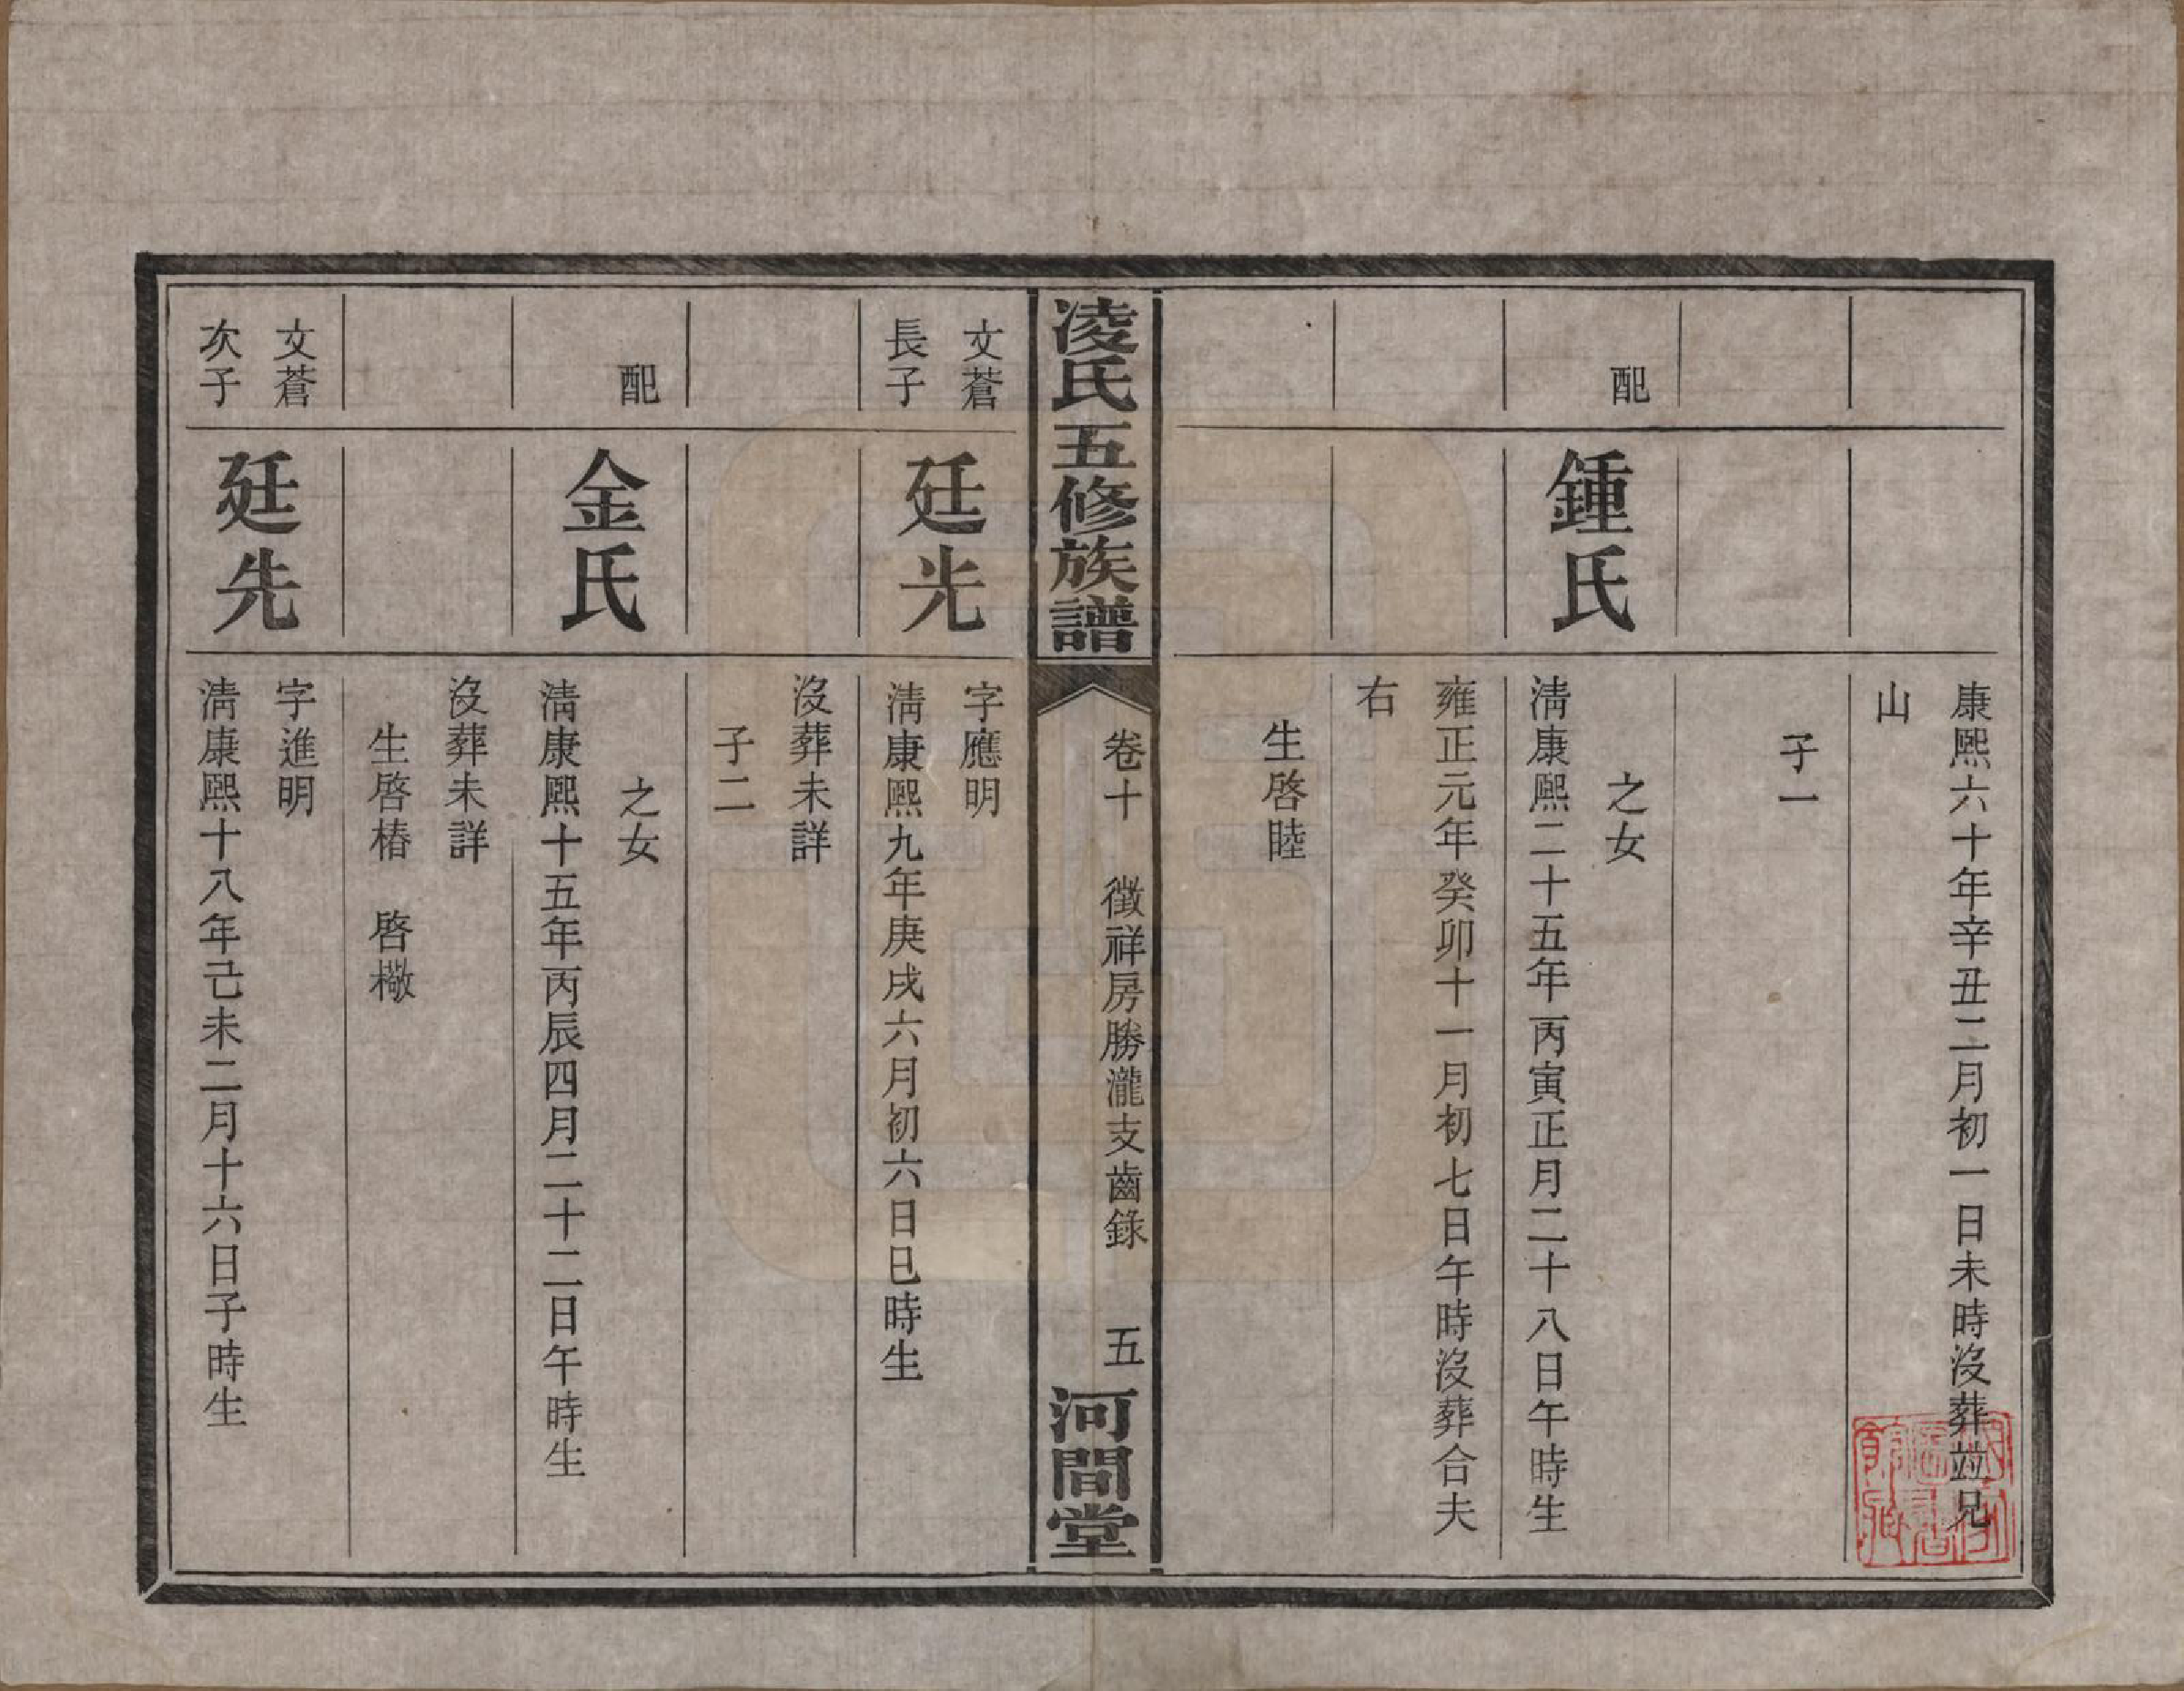 康熙六十年辛丑二月初一日未時沒葬竝兄
山
子一
配
鍾氏
之女
淸康熙二十五年丙寅正月二十八日午時生
雍正元年癸卯十一月初七日午時沒葬合夫
右
生啓睦
凌氏五修族譜
卷十　徵祥房勝瀧支齒錄　五
河間堂
文蒼
長子
廷光
字應明
淸康熙九年庚戌六月初六日巳時生
沒葬未詳
子二
配
金氏
之女
淸康熙十五年丙辰四月二十二日午時生
沒葬未詳
生啓椿　啓橄
文蒼
次子
廷先
字進明
淸康熙十八年己未二月十六日子時生